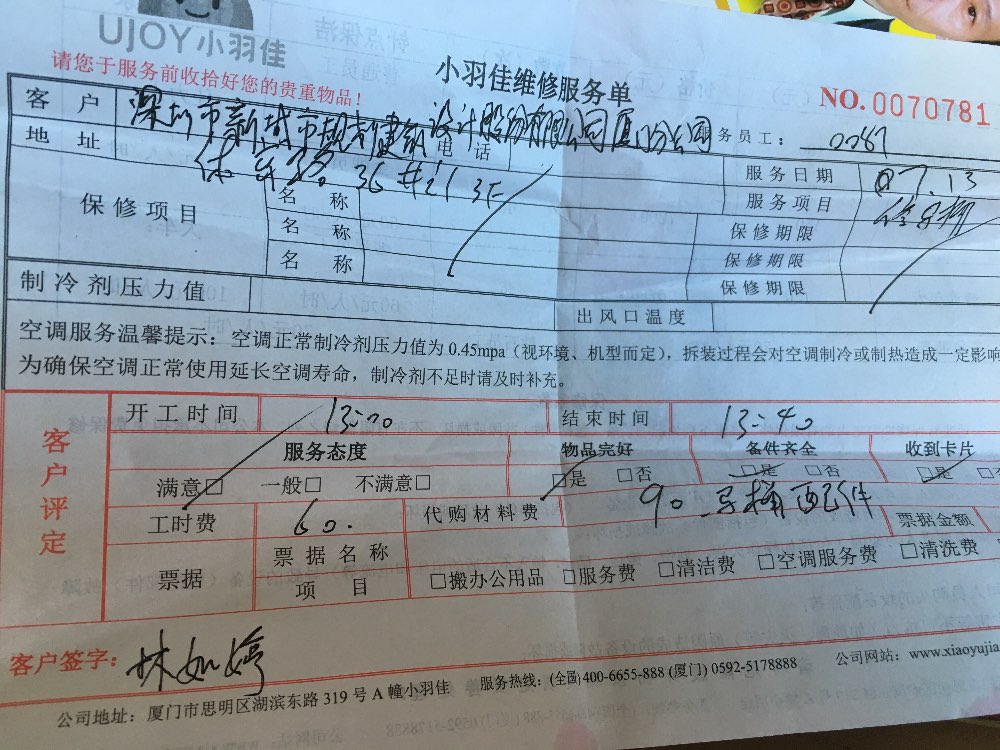 UJOY小羽佳
请您于服务前收拾好您的贵重物品！
小羽佳维修服务单
NO.0070781
客户 深圳市新城市规划建筑设计股份有限公司厦门分公司
服务员工：0087
地址 体育路36# 3F
电话
服务日期 07.13
保修项目
名称
服务项目
名称
保修期限
名称
保修期限
保修期限
制冷剂压力值
出风口温度
空调服务温馨提示：空调正常制冷剂压力值为0.45mpa（视环境、机型而定），拆装过程会对空调制冷或制热造成一定影响
为确保空调正常使用延长空调寿命，制冷剂不足时请及时补充。
客户评定
开工时间 13:00 结束时间 13:40
服务态度 物品完好 备件齐全 收到卡片
满意□ 一般□ 不满意□ □是 □否 □是 □否 □是
工时费 60. 代购材料费 90.马桶配件 票据金额
票据 票据名称
项目 □搬办公用品 □服务费 □清洁费 □空调服务费 □清洗费
客户签字：林如婷
公司地址：厦门市思明区湖滨东路319号A幢小羽佳 服务热线：(全国)400-6655-888 (厦门) 0592-5178888 公司网站：www.xiaoyujia